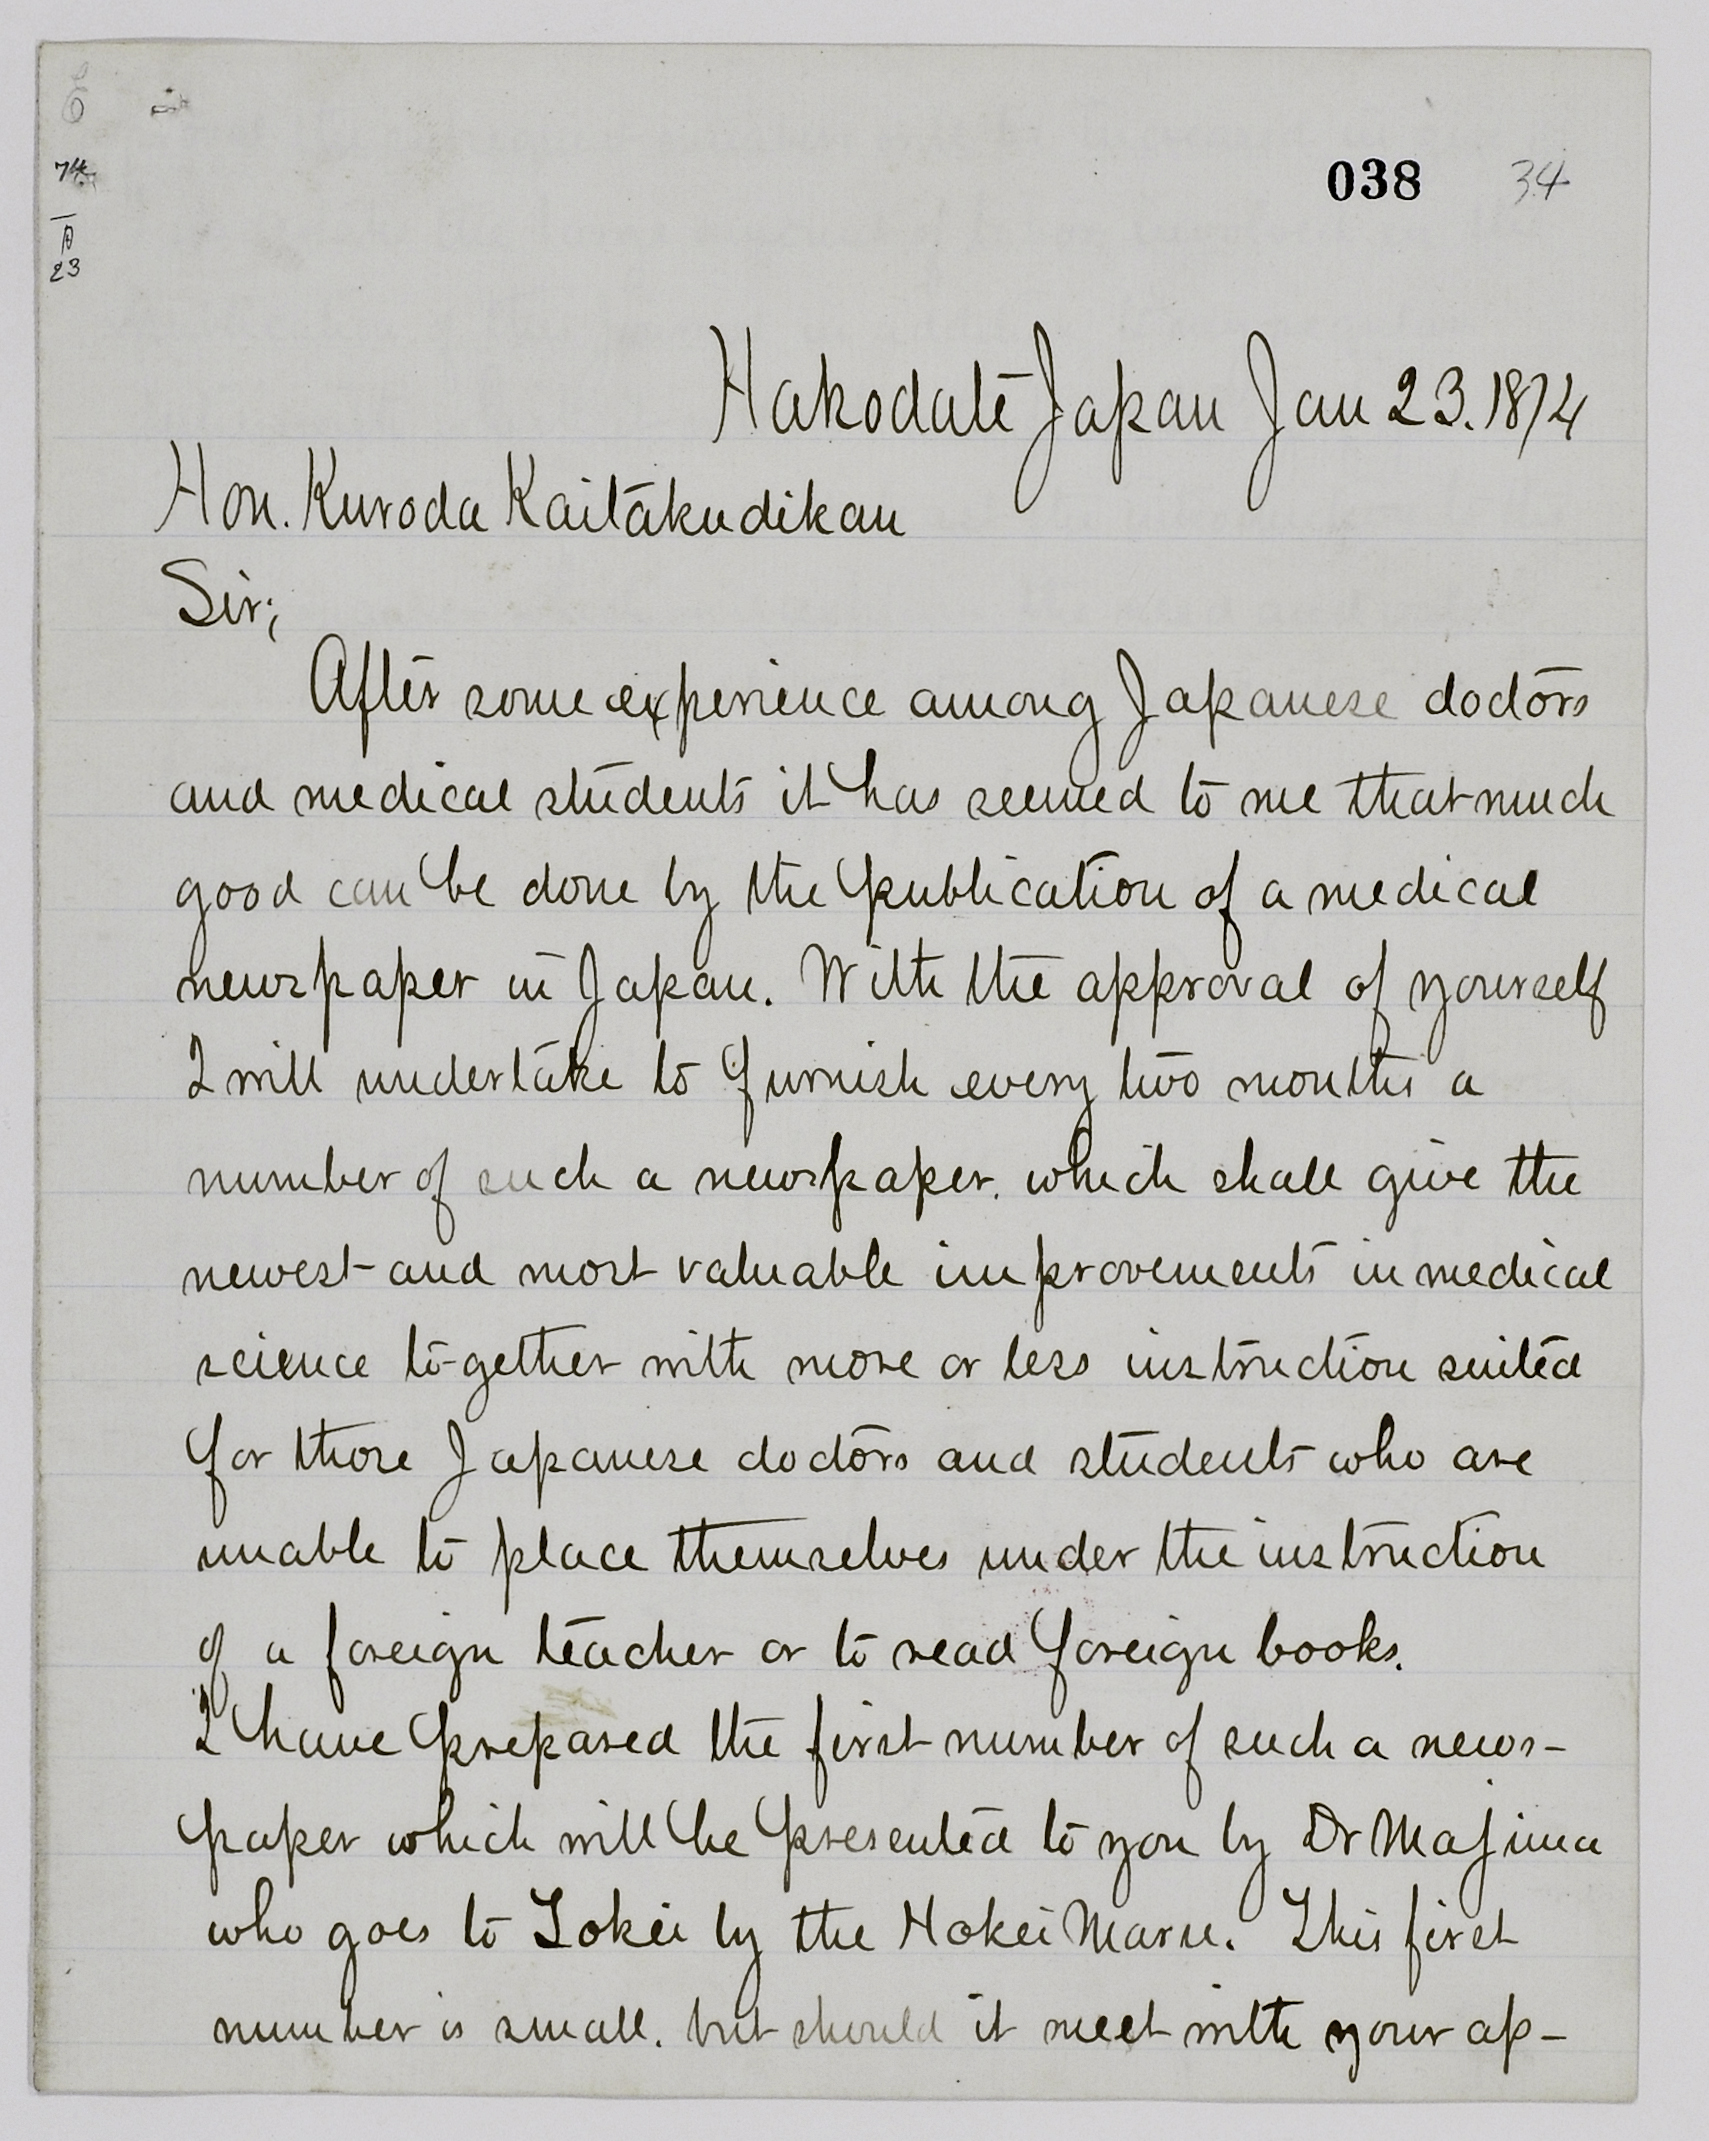 74
1
23
038 34
Hakodate Japan Jan 23. 1874
Hon. Kuroda Kaitakudikan
Sir;
After some experience among Japanese doctors
and medical students it has seemed to me that much
good can be done by the publication of a medical
newspaper in Japan. With the approval of yourself
I will undertake to furnish every two months a
number of such a newspaper. which shall give the
newest and most valuable improvements in medical
science to-gether with more or less instruction suited
for those Japanese doctors and students who are
unable to place themselves under the instruction
of a foreign teacher or to read foreign books.
I have prepared the first number of such a news-
paper which will be presented to you by Dr Majima
who goes to Tokei by the Hokei Maru. This first
number is small. but should it meet with your ap-